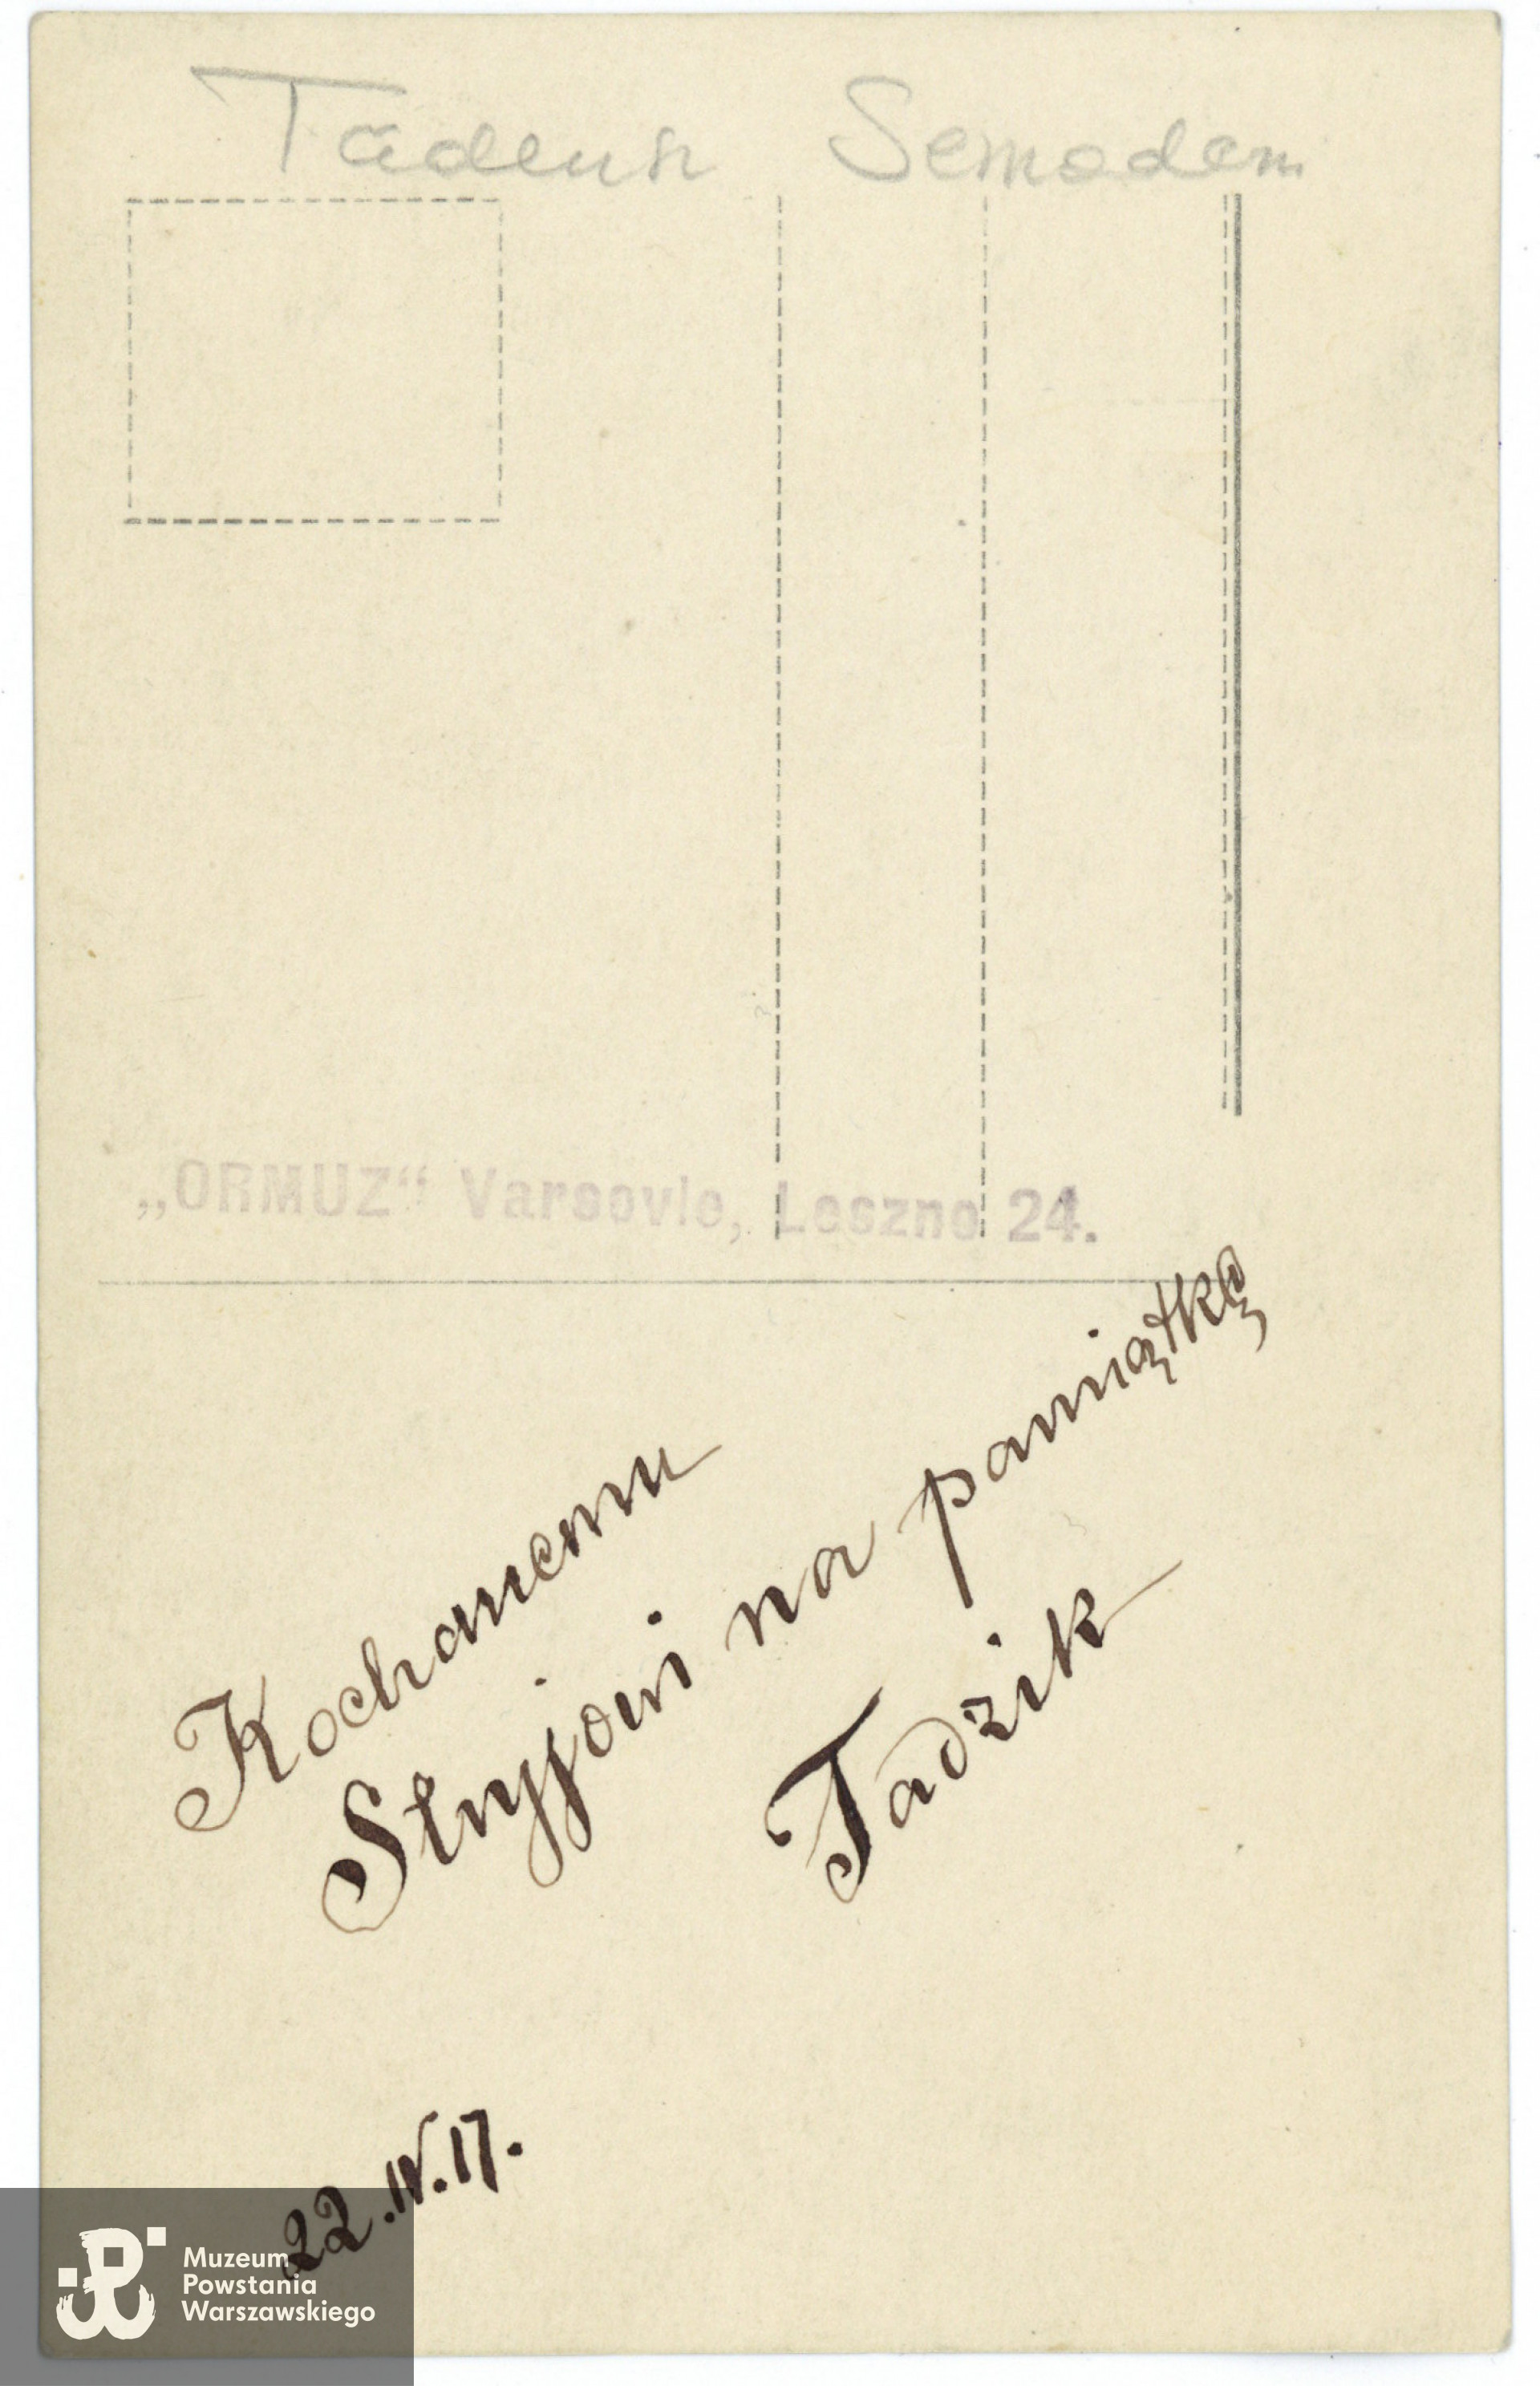 Tadeusz Semadeni
„ORMUZ“ Varsovie, Leszno 24.
Kochanemu
Stryjowi na pamiątkę
Tadzik
22.IV.17.
Muzeum
Powstania
Warszawskiego